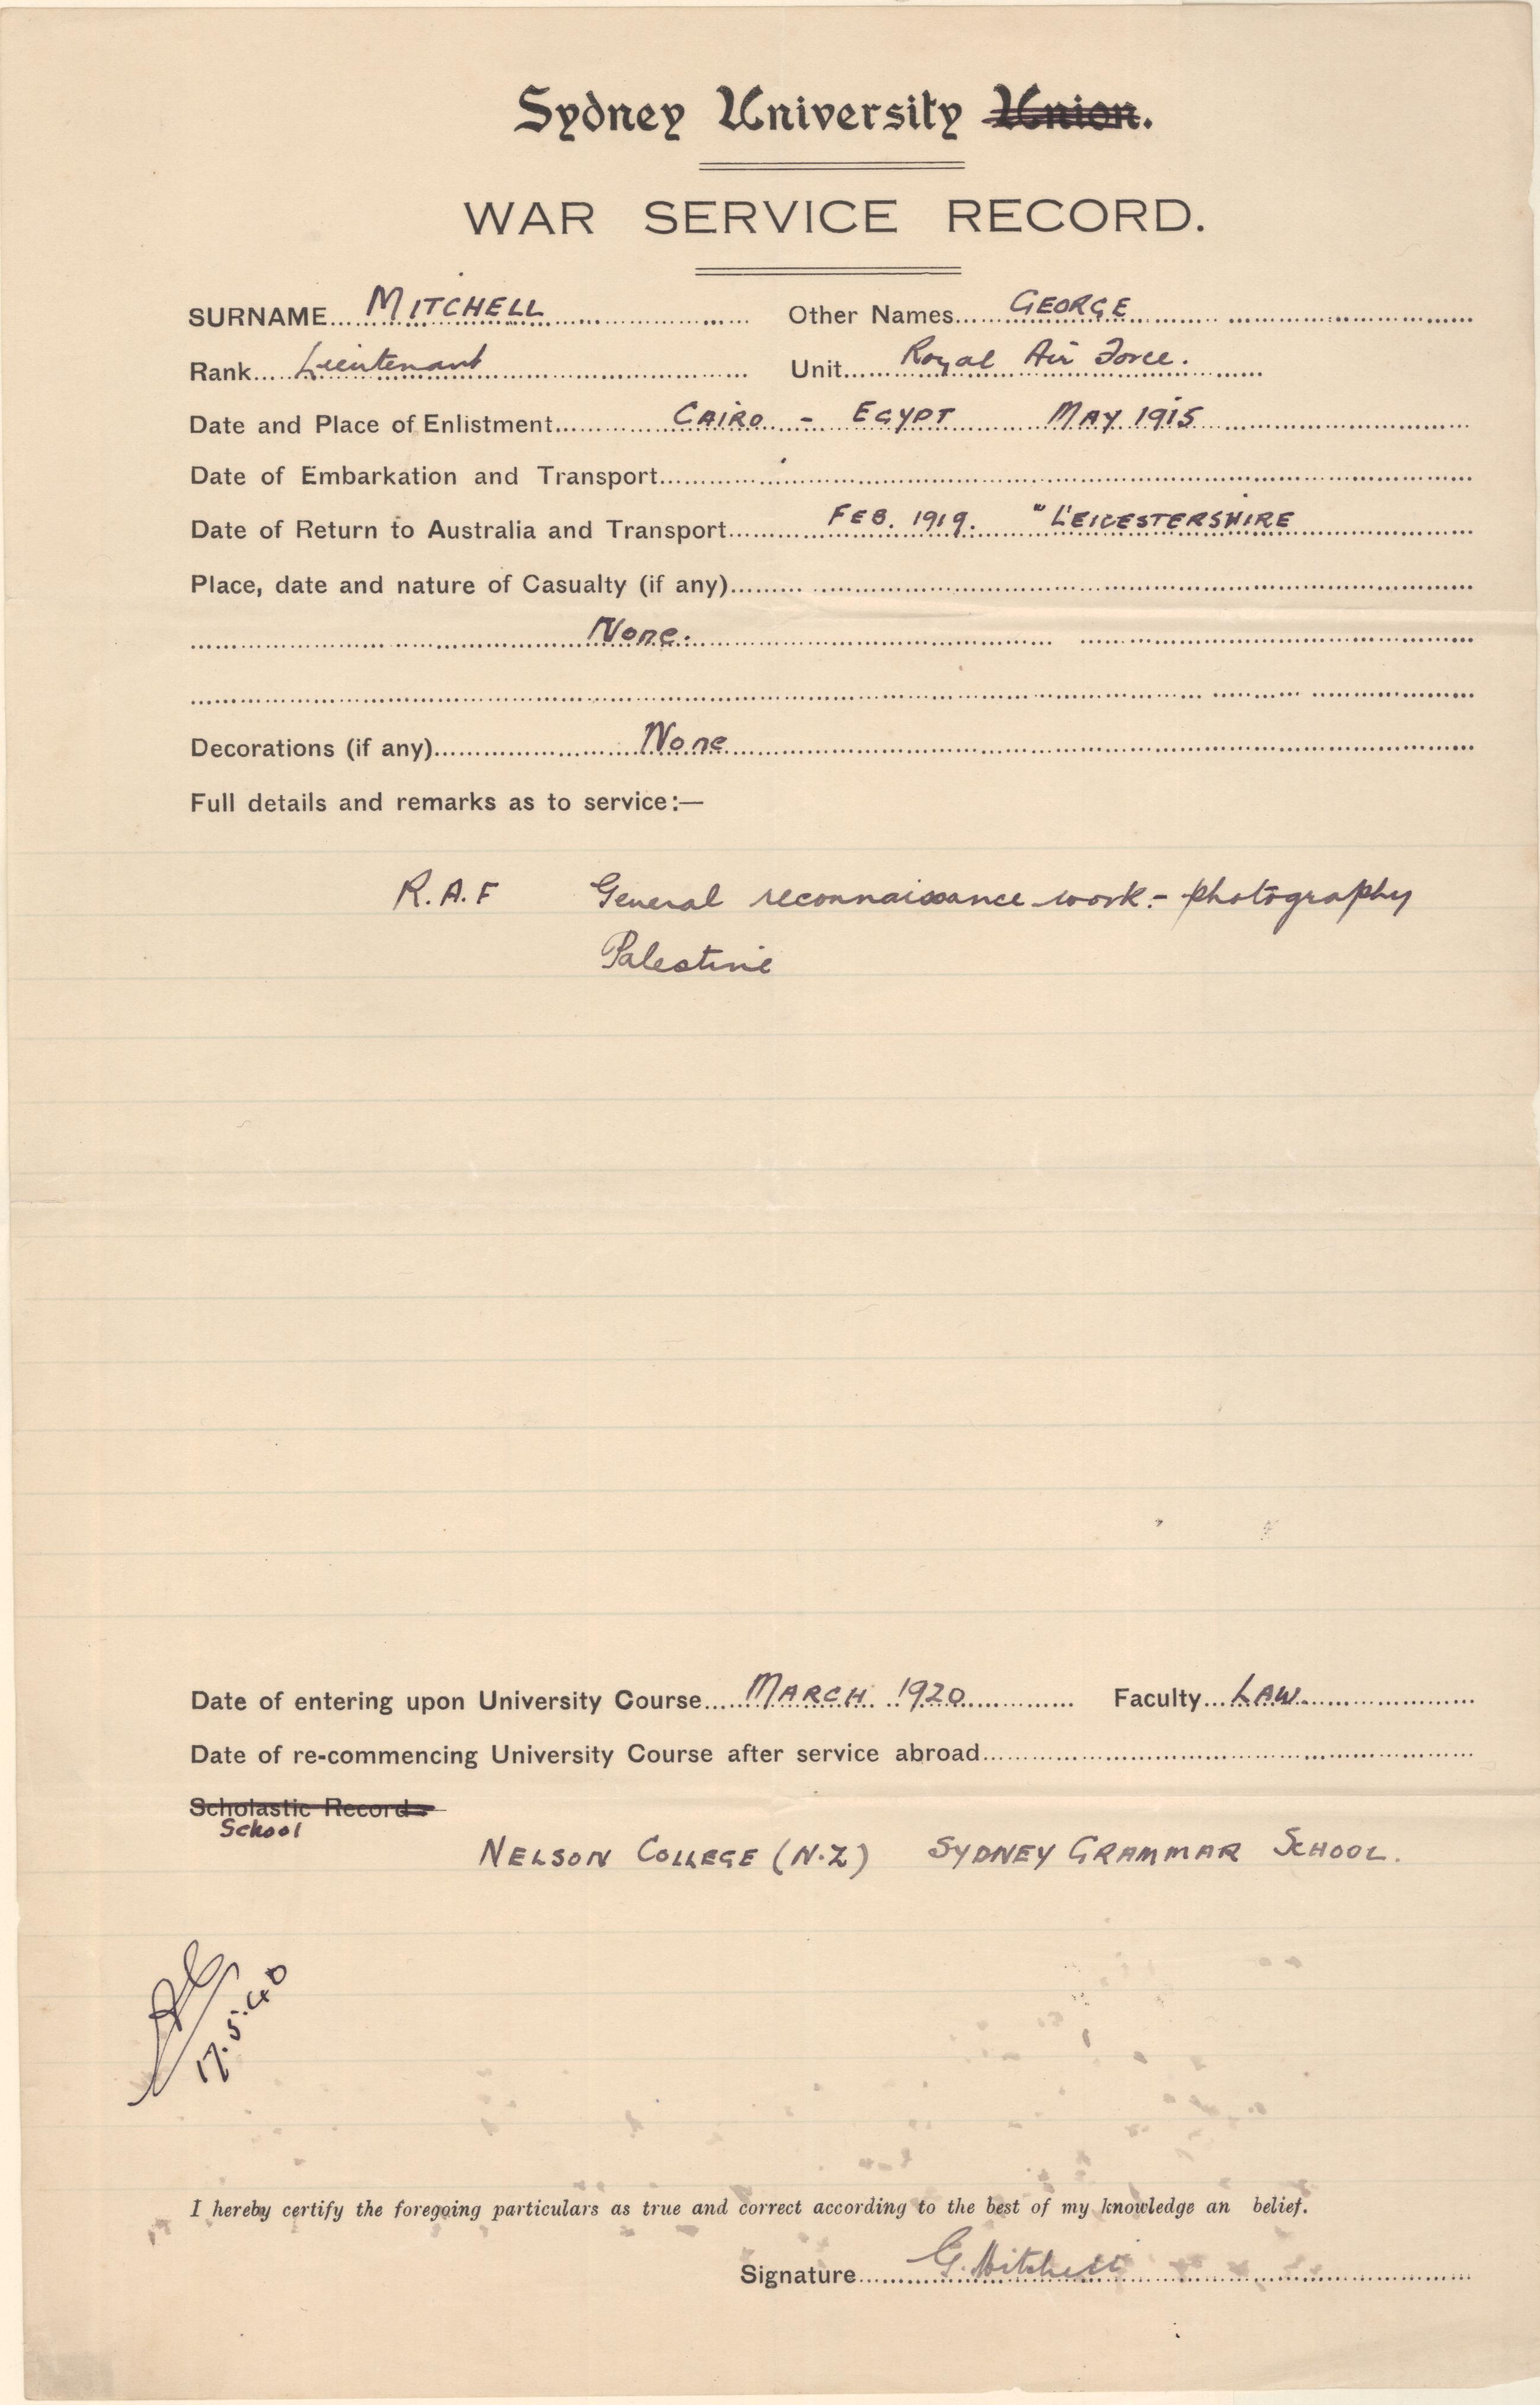 Sydney University Union.
WAR SERVICE RECORD.
SURNAME MITCHELL Other Names GEORGE
Rank Lieutenant Unit Royal Air Force.
Date and Place of Enlistment CAIRO - EGYPT MAY 1915
Date of Embarkation and Transport
Date of Return to Australia and Transport FEB. 1919. "LEICESTERSHIRE
Place, date and nature of Casualty (if any)
None.
Decorations (if any) None
Full details and remarks as to service:—
R.A.F General reconnaissance work - photography
Palestine
Date of entering upon University Course MARCH 1920 Faculty LAW.
Date of re-commencing University Course after service abroad
Scholastic Record
School
NELSON COLLEGE (N.Z) SYDNEY GRAMMAR SCHOOL.
17.5.40
I hereby certify the foregoing particulars as true and correct according to the best of my knowledge an belief.
Signature G. Mitchell